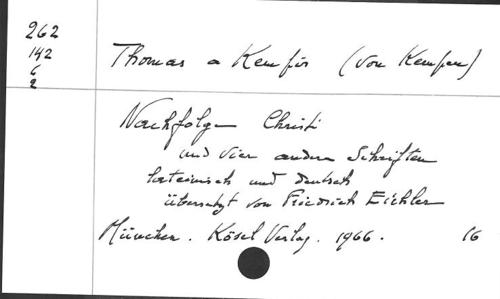 262
142
6
2
Thomas a Kempis (von Kempen)
Nachfolge Christi
und vier andere Schriften
lateinisch und deutsch
übersetzt von Friedrich Eichler
München. Kösel Verlag. 1966. 16